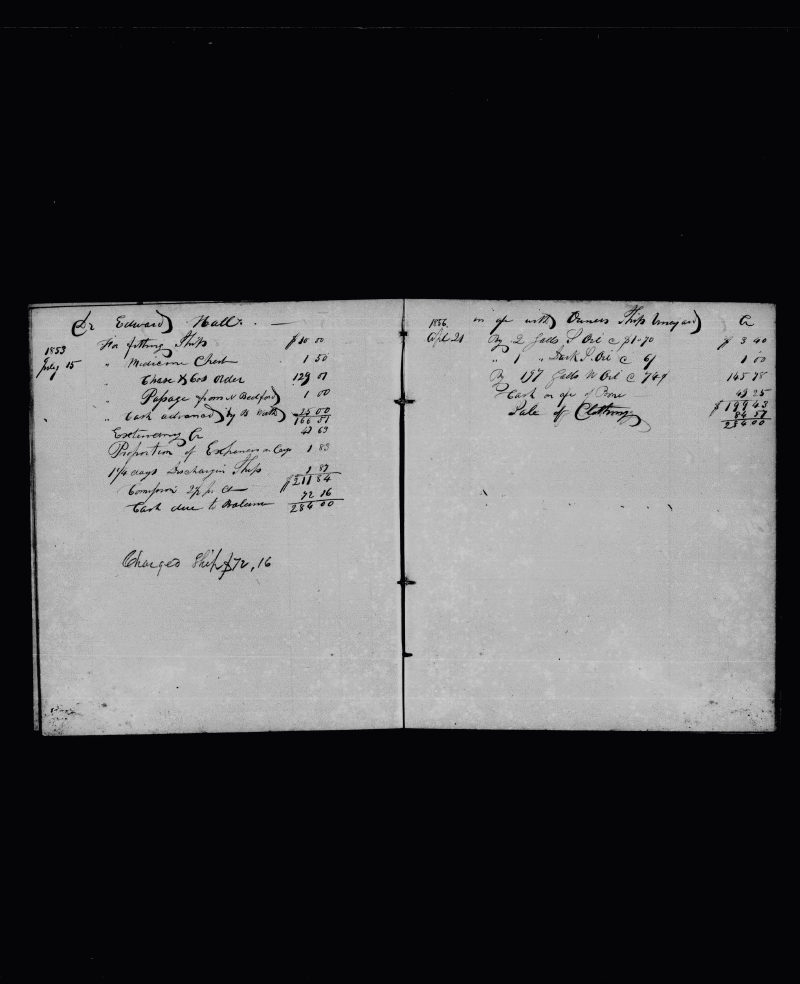 Dr Edward Hall. —
1853
July 15
For fitting Ship $10 00
" Medicine Chest 1 50
" Chase & Cos Order 129 01
" Passage from N Bedford 1 00
" Cash advanced by 25 00
166 51
Cr 42 63
Proportion of Expenses on Cargo 1 83
1¼ days Discharging Ship 1 87
$211 84
Cash due to Balance 72 16
284 00
Charged Ship $72,16
1856 in a/c with Owners Ship Vineyard Cr
Apl 21 By 2 Galls S Oil @ $1.70 $3 40
" 1 " Dark S Oil @ 1 00
By 197 Galls W Oil @ 74 145 78
Cash on a/c of Bone 49 25
$199 43
Sale of Clothing 84 57
284 00